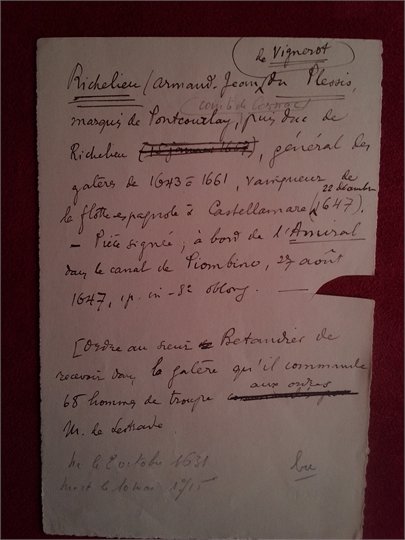 de Vignerot
Richelieu (Armand-Jean du Plessis,
comte de
marquis de Pontcourlay, puis duc de
Richelieu, général des
galères de 1643 à 1661, vainqueur de
la flotte espagnole à Castellamare (22 décembre 1647).
— Pièce signée ; à bord de l'Amiral
dans le canal de Piombino, 27 août
1647, 1 p. in-8° oblong. —
[Ordre au sieur Betandier de
recevoir dans la galère qu'il commande
68 hommes de troupe aux ordres
M. de Lestrade.
Né le 2 octobre 1631
Mort le 10 mai 1715
bu